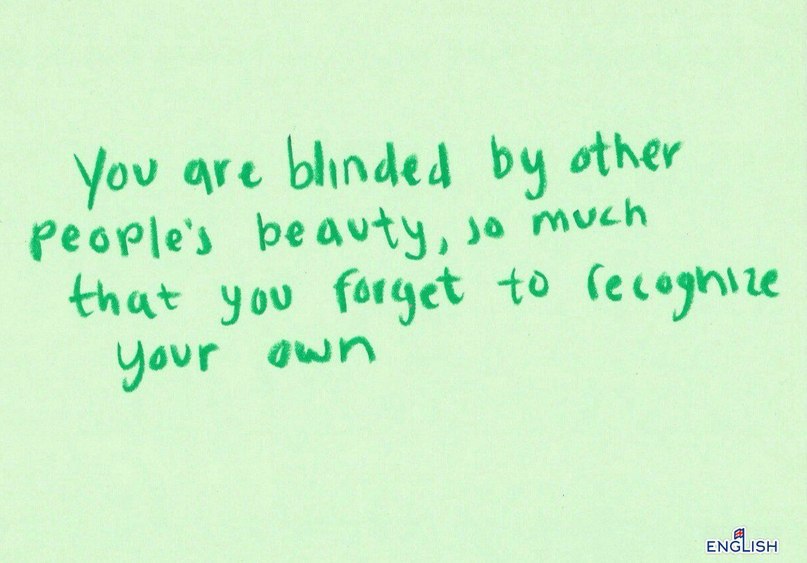 You are blinded by other
people's beauty, so much
that you forget to recognize
your own
ENGLISH